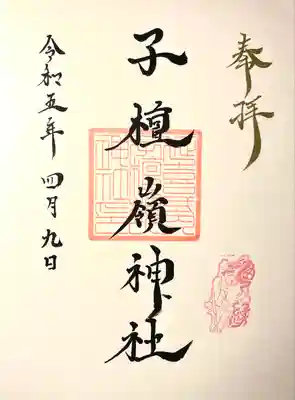 奉拝
子檀嶺神社
令和五年 四月九日